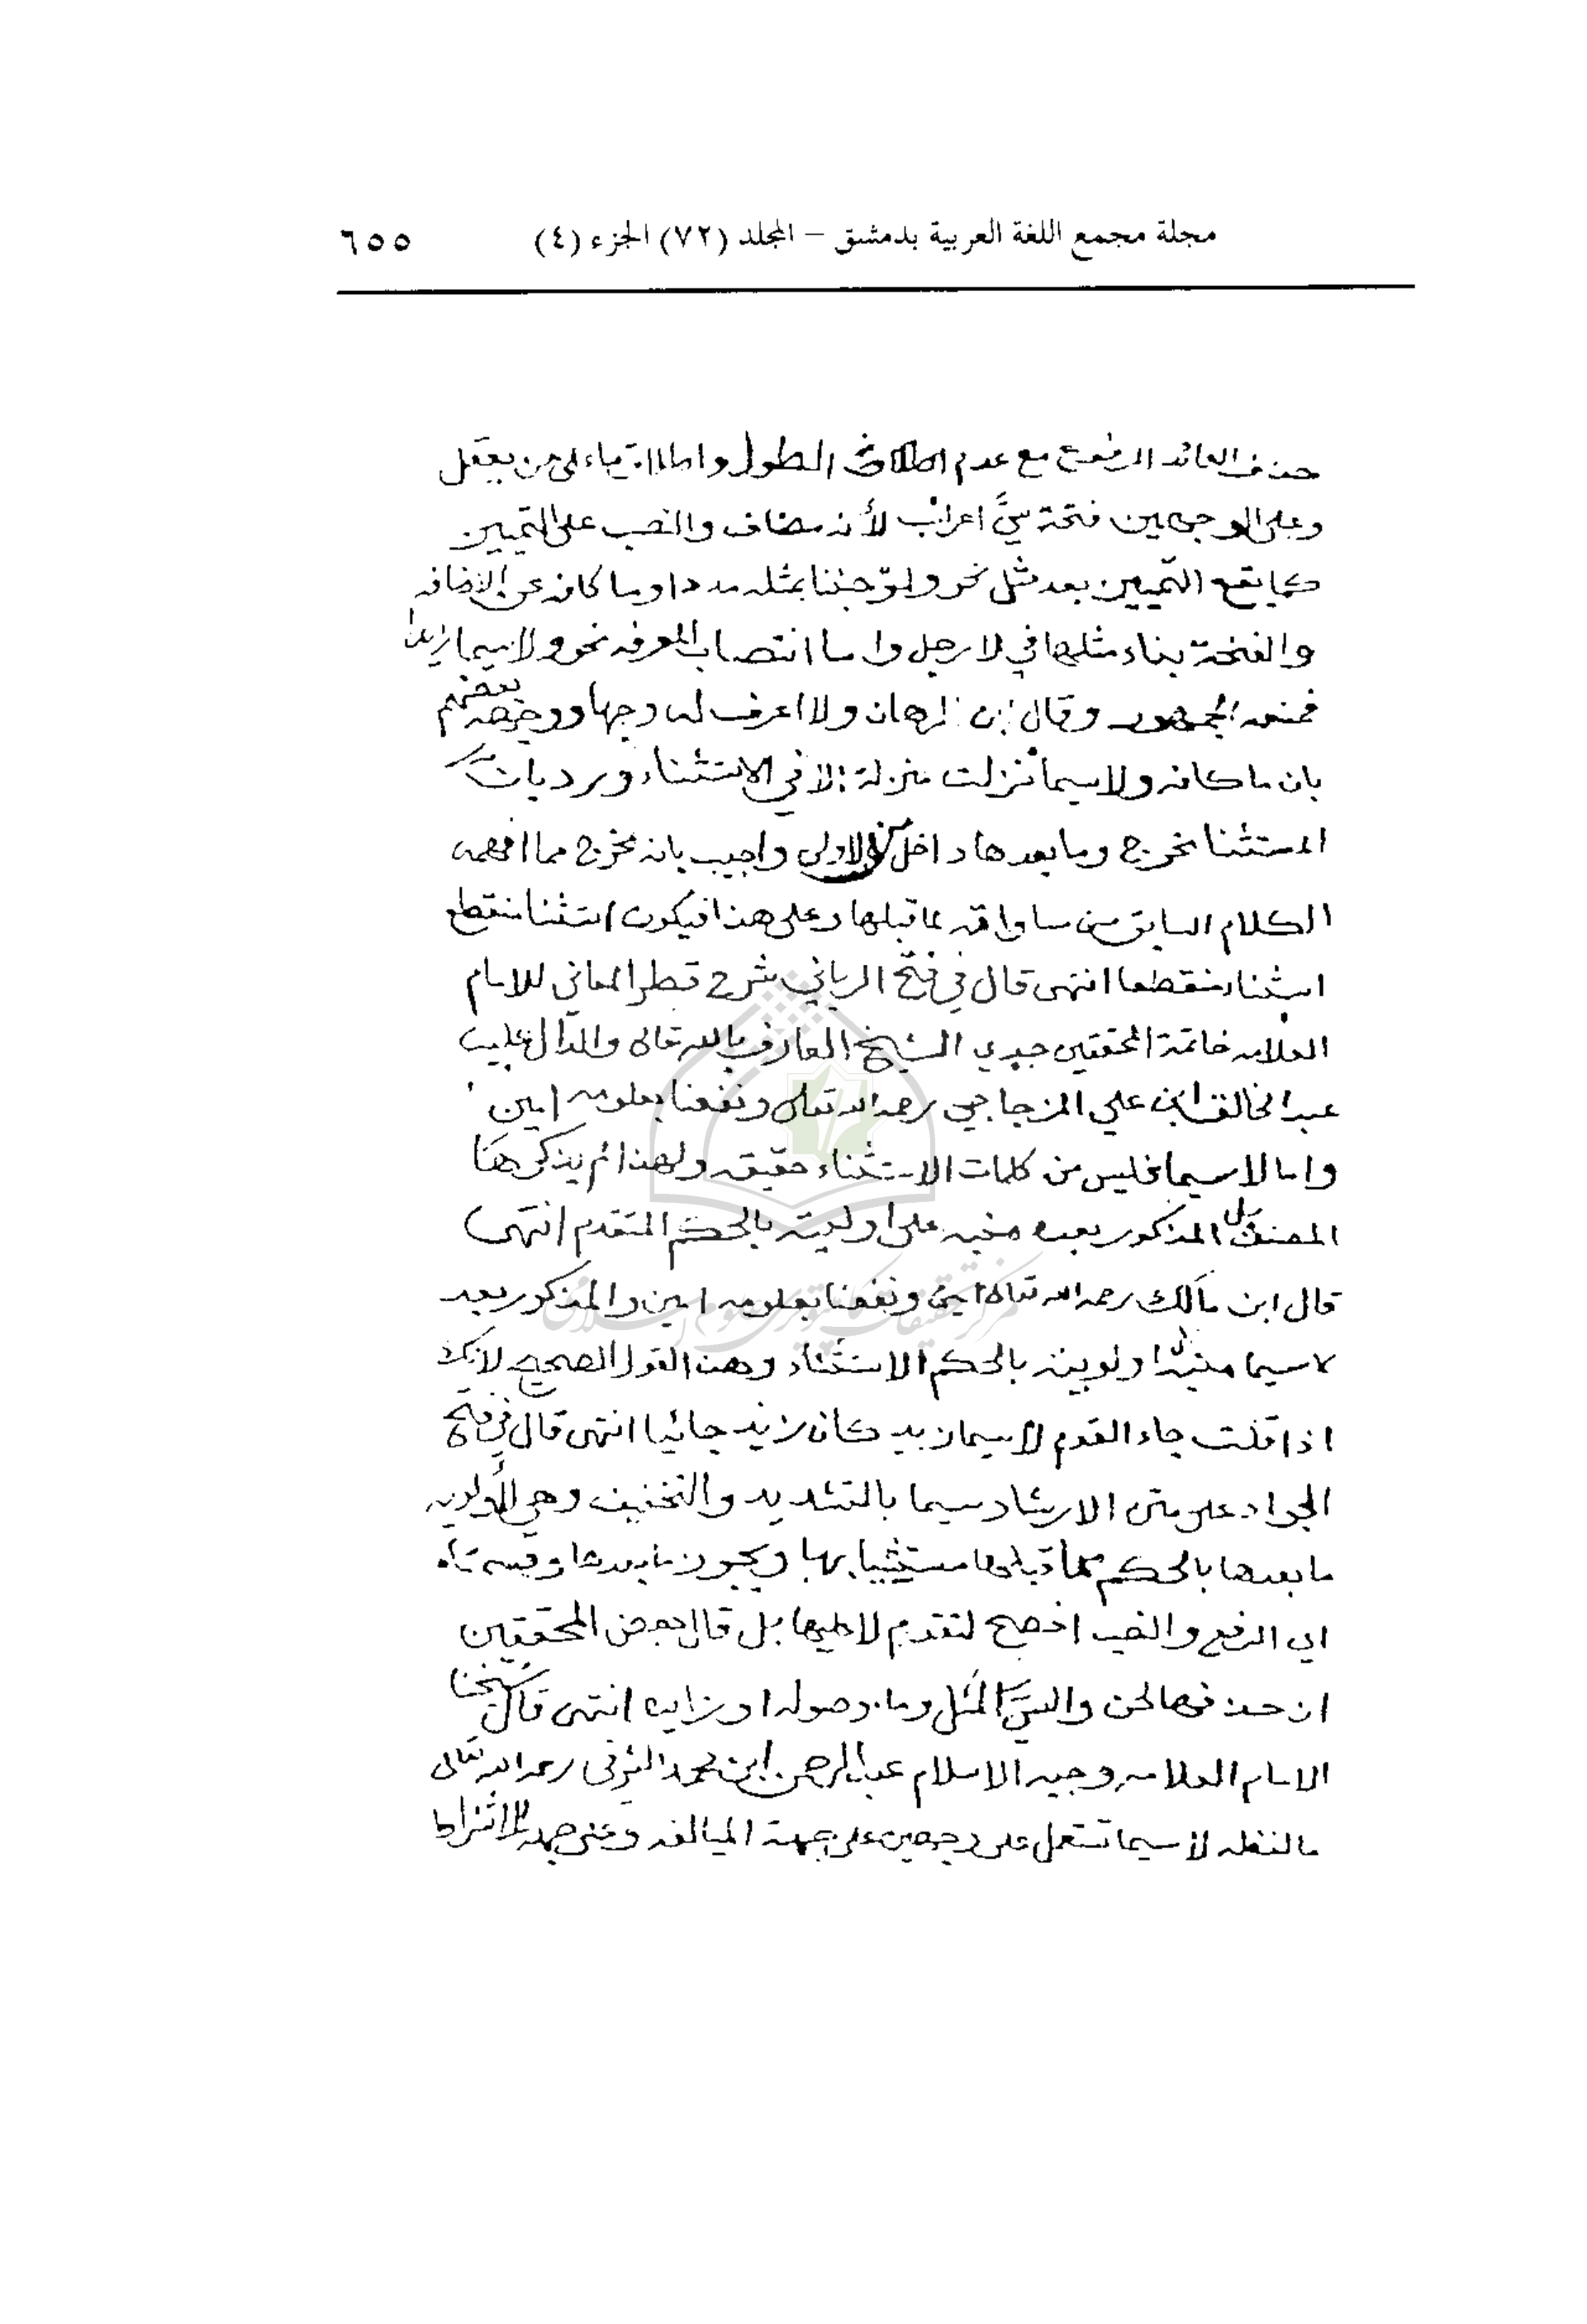 مجلة مجمع اللغة العربية بدمشق – المجلد (٧٢) الجزء (٤) ٦٥٥
حذف العائد المرفوع مع عدم الطول واطلاق ما على من يعقل
وعلى الوجهين فتحة سيَّ اعراب لأنه مضاف والنصب على التمييز
كما يقع التمييز بعد مثل نحو ولو جئنا بمثله مددا وما كافه عن الاضافه
والفتحة بناء مثلها في لا رجل واما انتصاب المعرفه نحو ولا سيما زيدا
فمنعه الجمهور وقال ابن الدهان ولا اعرف له وجها ووجهه بعضهم
بان ما كافه ولا سيما نزلت منزلة الا في الاستثناء ورد بان
المستثنا مخرج وما بعدها داخل الاولى واجيب بانه مخرج مما افهمه
الكلام السابق من مساواته لما قبلها وعلى هذا فيكون استثنا منقطع
استثناء منقطعا انتهى قال في فتح الرباني شرح قطر المعاني للامام
العلامه خاتمة المحققين جدي الشيخ العارف بالله تعالى والدال عليه
عبد الخالق ابن علي المزجاجي رحمه الله تعالى ونفعنا بعلومه امين
واما لاسيما فليس من كلمات الاستثناء حقيقه ولهذا لم يذكر هنا
المصنف بل المذكور بعده منبه على اولويته بالحكم المتقدم انتهى
قال ابن مالك رحمه الله تعالى ونفعنا بعلومه امين والمذكور بعد
لاسيما منبه اولويته بالحكم الاستثناء وهذا القول الصحيح لانك
اذا قلت جاء القوم لاسيما زيد كان زيد جائيا انتهى قال في فتح
الجواد على متن الارشاد سيما بالتشديد والتخفيف وهي لأولويه
ما بعدها بالحكم مما قبلها مستثنيا بها ويجوز ما بعدها وقسمتاه
اي الرفع والنصب افصح لتقدم لا عليها بل قال بعض المحققين
ان حذفها لحن والسيّ المثل وما موصوله او زايده انتهى قال شيخنا
الامام العلامه وجيه الاسلام عبد الرحمن ابن محمد الشرفي رحمه الله تعالى
ما لفظه لاسيما تستعمل على وجهين على جهة المبالغه وعلى جهة الاشتراط